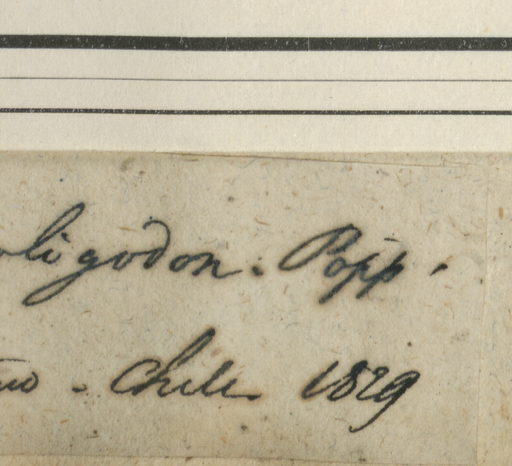 oligodon. Popp.
- Chile 1829